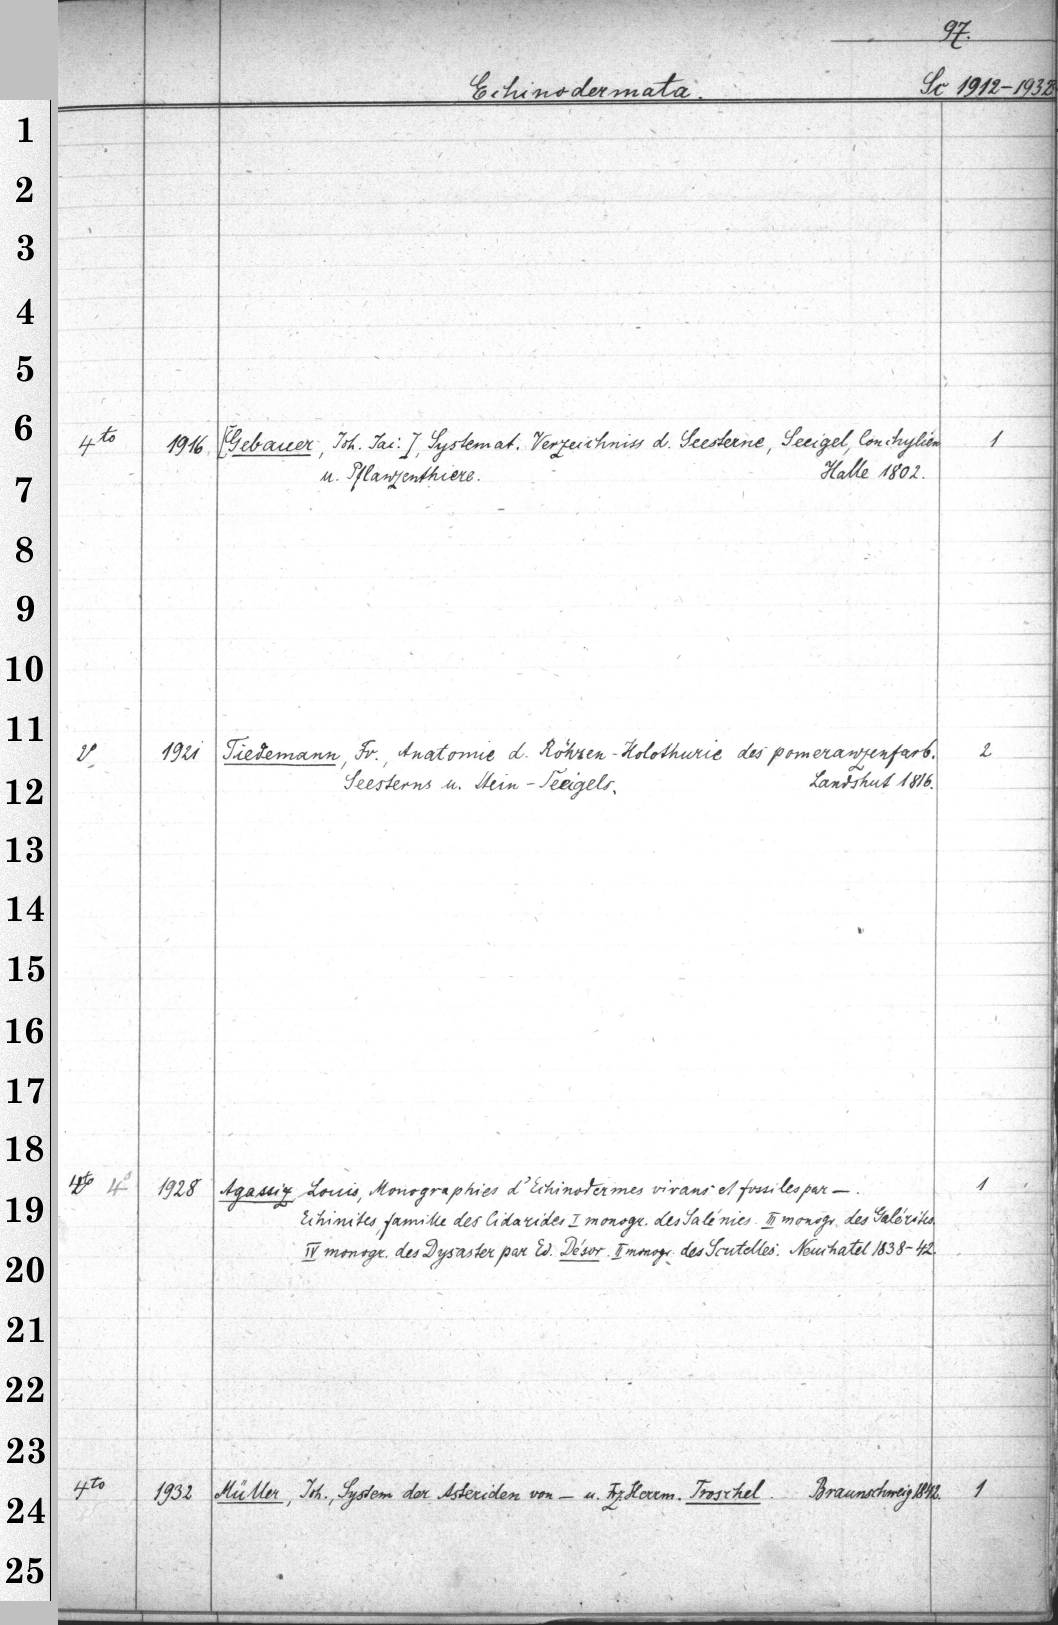 97.
Echinodermata. Sc 1912-1932
1
2
3
4
5
6
4to 1916. [Gebauer, Joh. Jac.], Systemat. Verzeichniss d. Seesterne, Seeigel, Conchylien 1
u. Pflanzenthiere. Halle 1802.
7
8
9
10
11
1921 Tiedemann, Fr., Anatomie d. Röhren-Holothurie des pomeranzenfarb. 2
Seesterns u. Stein-Seeigels. Landshut 1816.
12
13
14
15
16
17
18
4to 4° 1928 Agassiz Louis, Monographies d'Echinodermes vivans et fossiles par —. 1
19
Echinites, famille des Cidarides I monogr. des Salénies. III monogr. des Galérites.
IV monogr. des Dysaster par Ed. Désor. II monogr. des Scutelles. Neuchatel 1838-42.
20
21
22
23
4to 1932 Müller, Joh., System der Asteriden von — u. Fz. Herrm. Troschel. Braunschweig 1842. 1
24
25